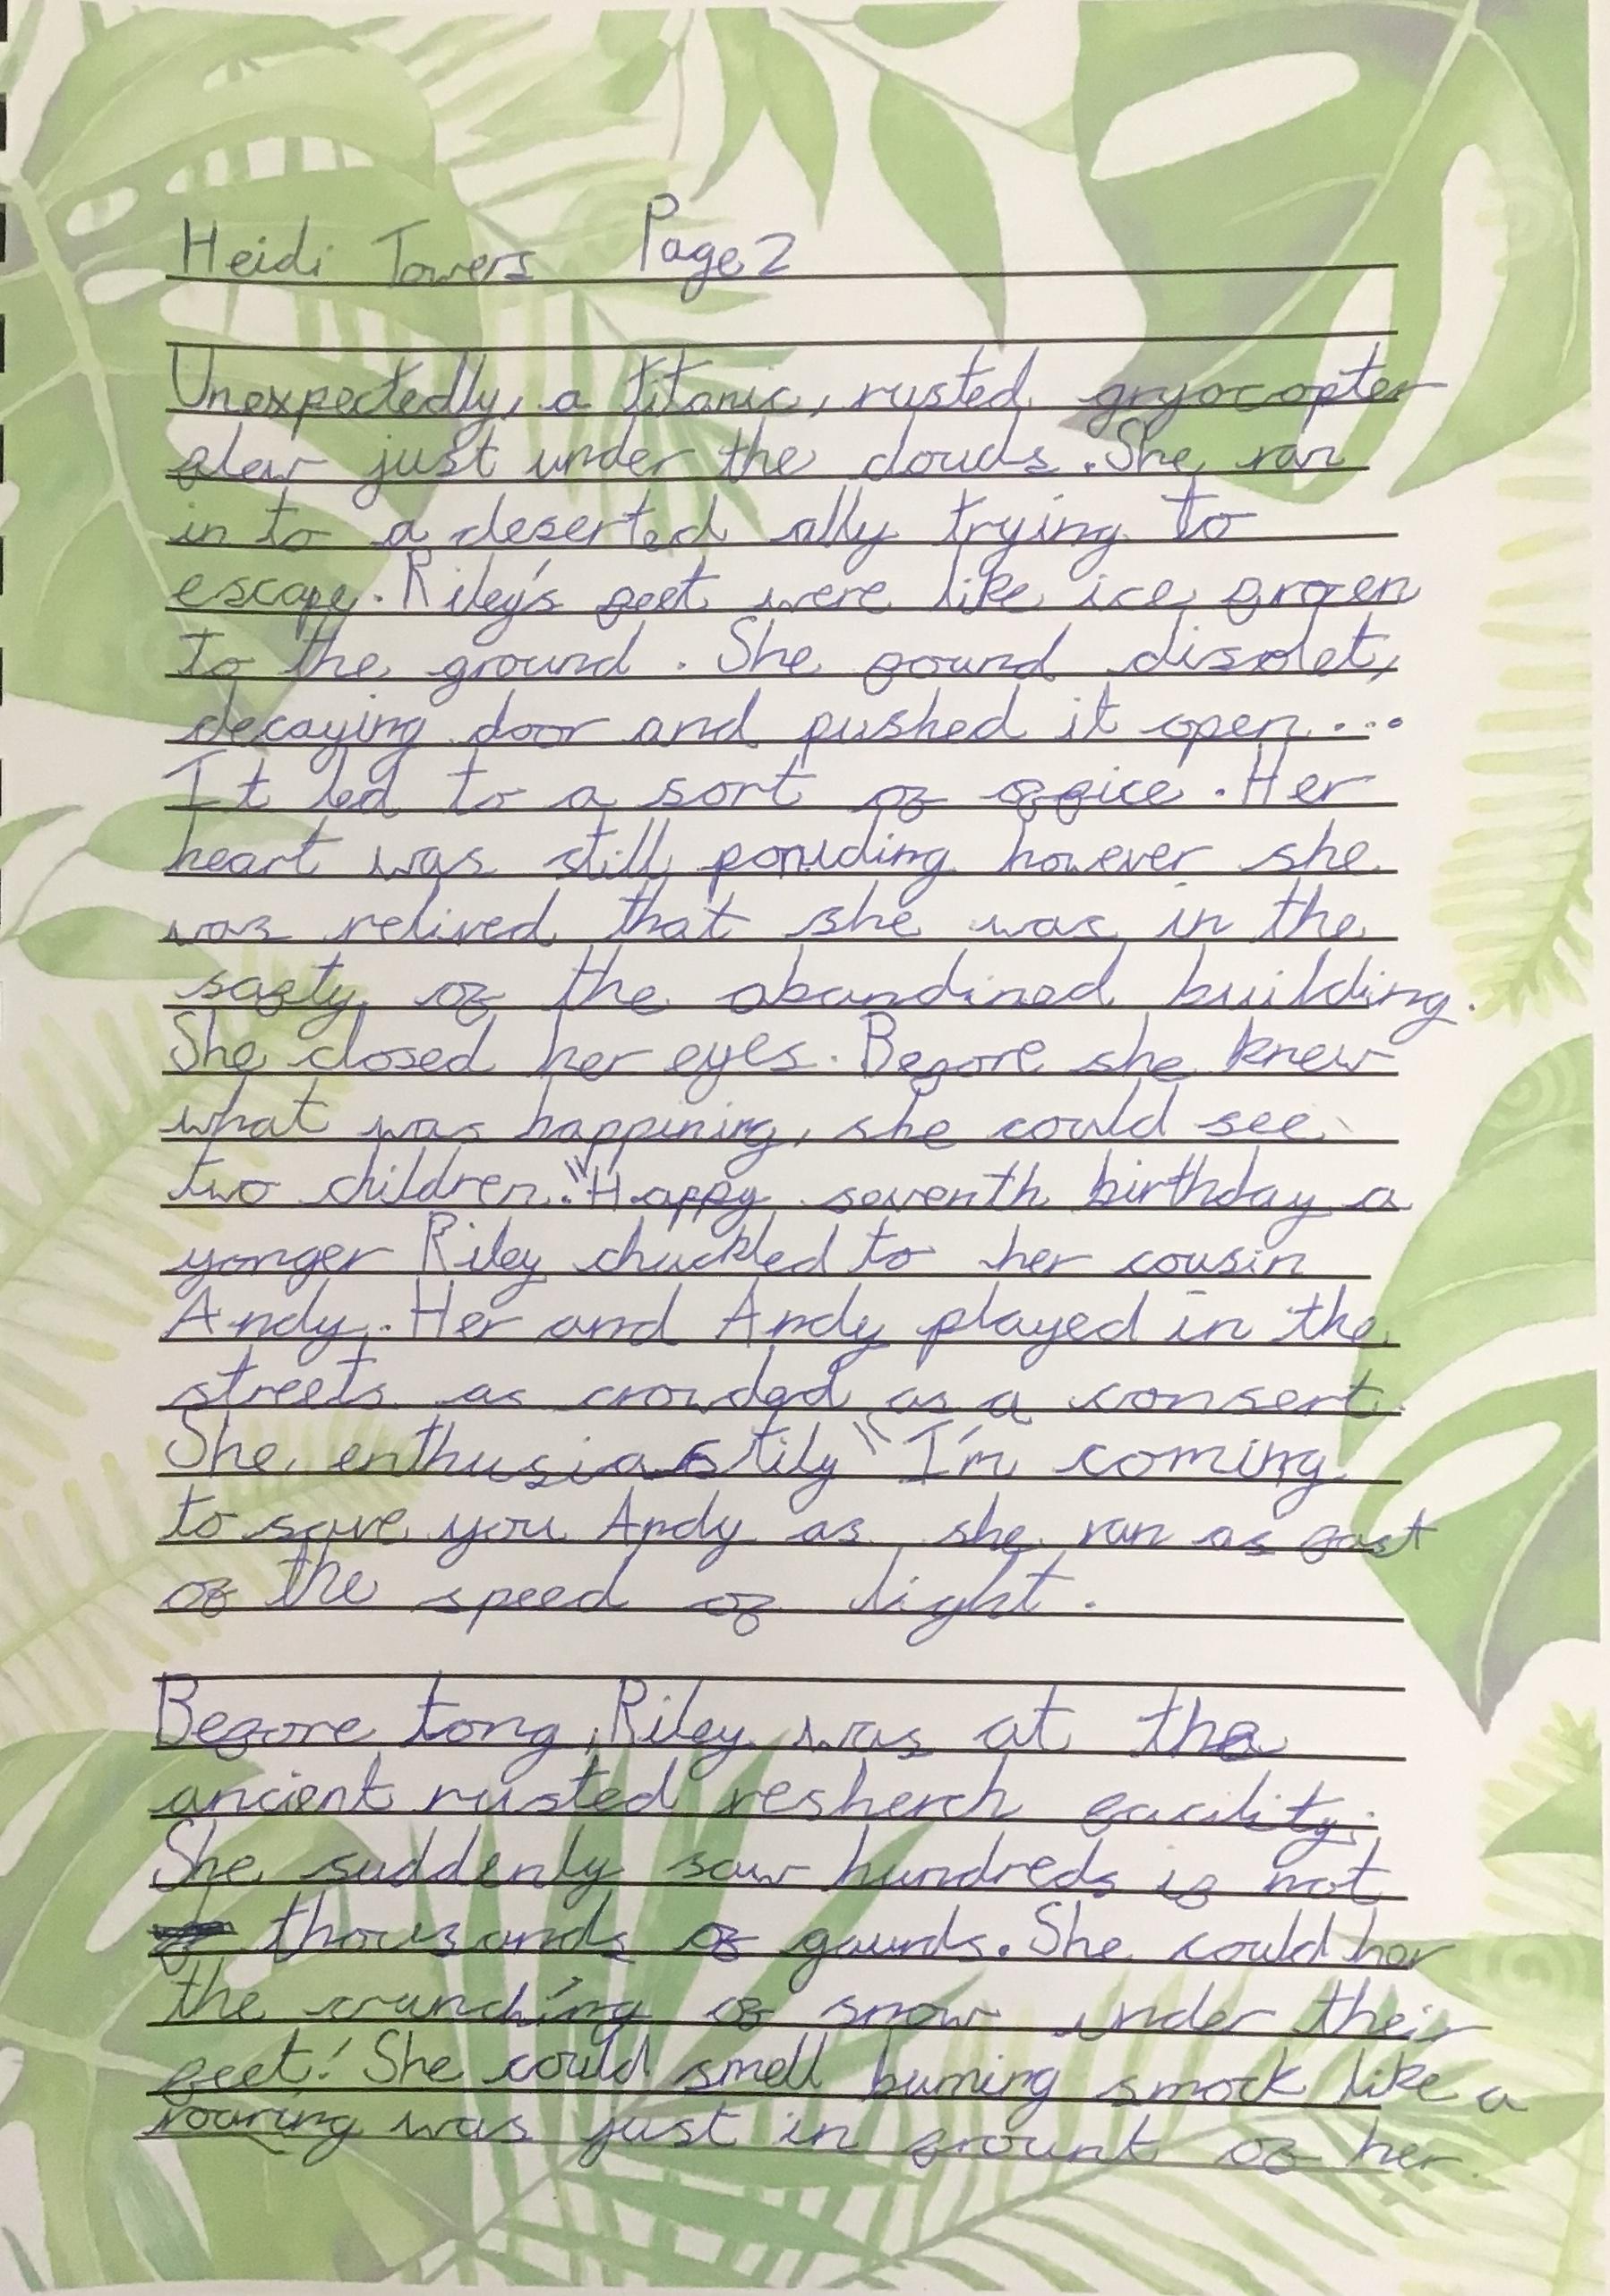 Heidi Towers Page 2
Unexpectedly, a titanic, rusted gryocopter
flew just under the clouds. She ran
in to a deserted ally trying to
escape. Riley's feet were like ice frozen
to the ground. She found disolet,
decaying door and pushed it open...
It led to a sort of office. Her
heart was still ponuding however she
was relived that she was in the
safty of the abandined building.
She closed her eyes. Before she knew
what was happining, she could see
two children. "Happy seventh birthday a
yonger Riley chuckled to her cousin
Andy. Her and Andy played in the
streets as crowded as a consert.
She enthusiastily "I'm coming
to save you Andy as she ran as fast
of the speed of light.
Before tong, Riley was at the
ancient rusted resherch facility.
She suddenly saw hundreds if not
thousands of gaurds. She could her
the crunching of snow under their
feet! She could smell burning smock like a
roaring was just in frount of her.